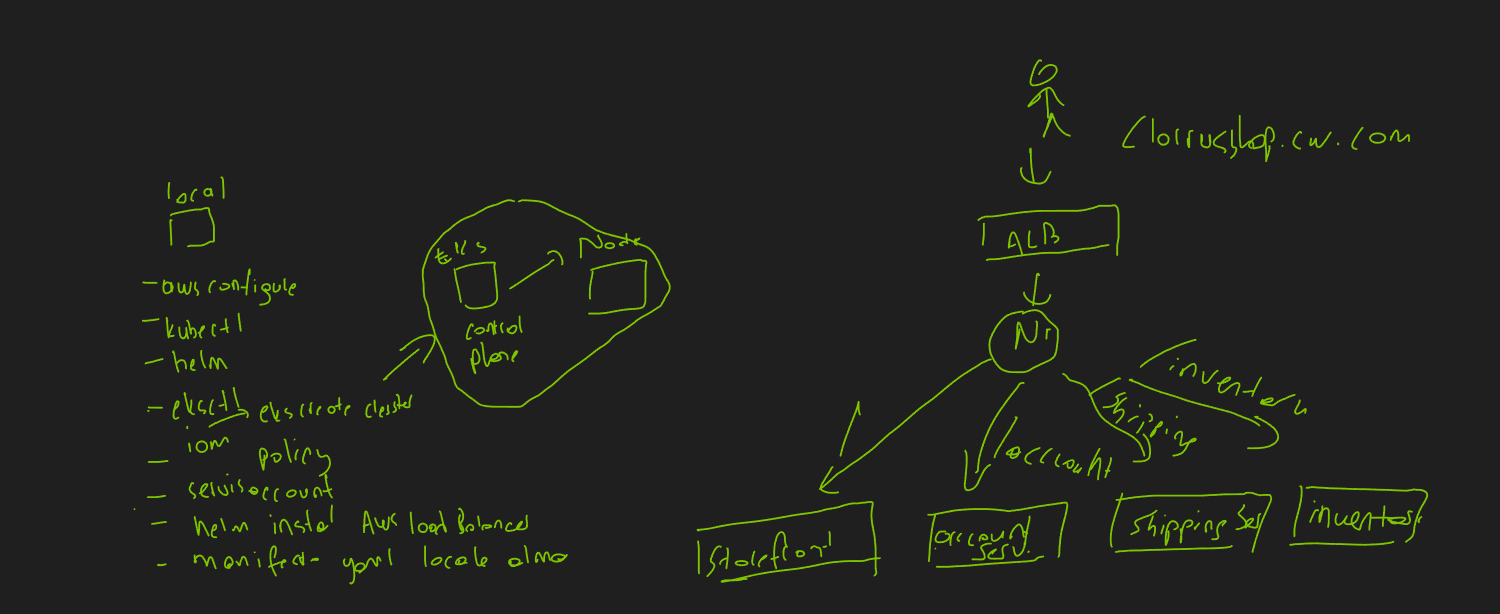 local
- aws configure
- kubectl
- helm
- eksctl eks create cluster
- iam policy
- servisaccount
- helm instal Aws load Balancer
- manifest- yaml locale alma
EKS
control
plane
Node
clarusshop.cw.com
ALB
/
/account
shipping
inventory
storefront
account
serv.
shipping ser
inventory